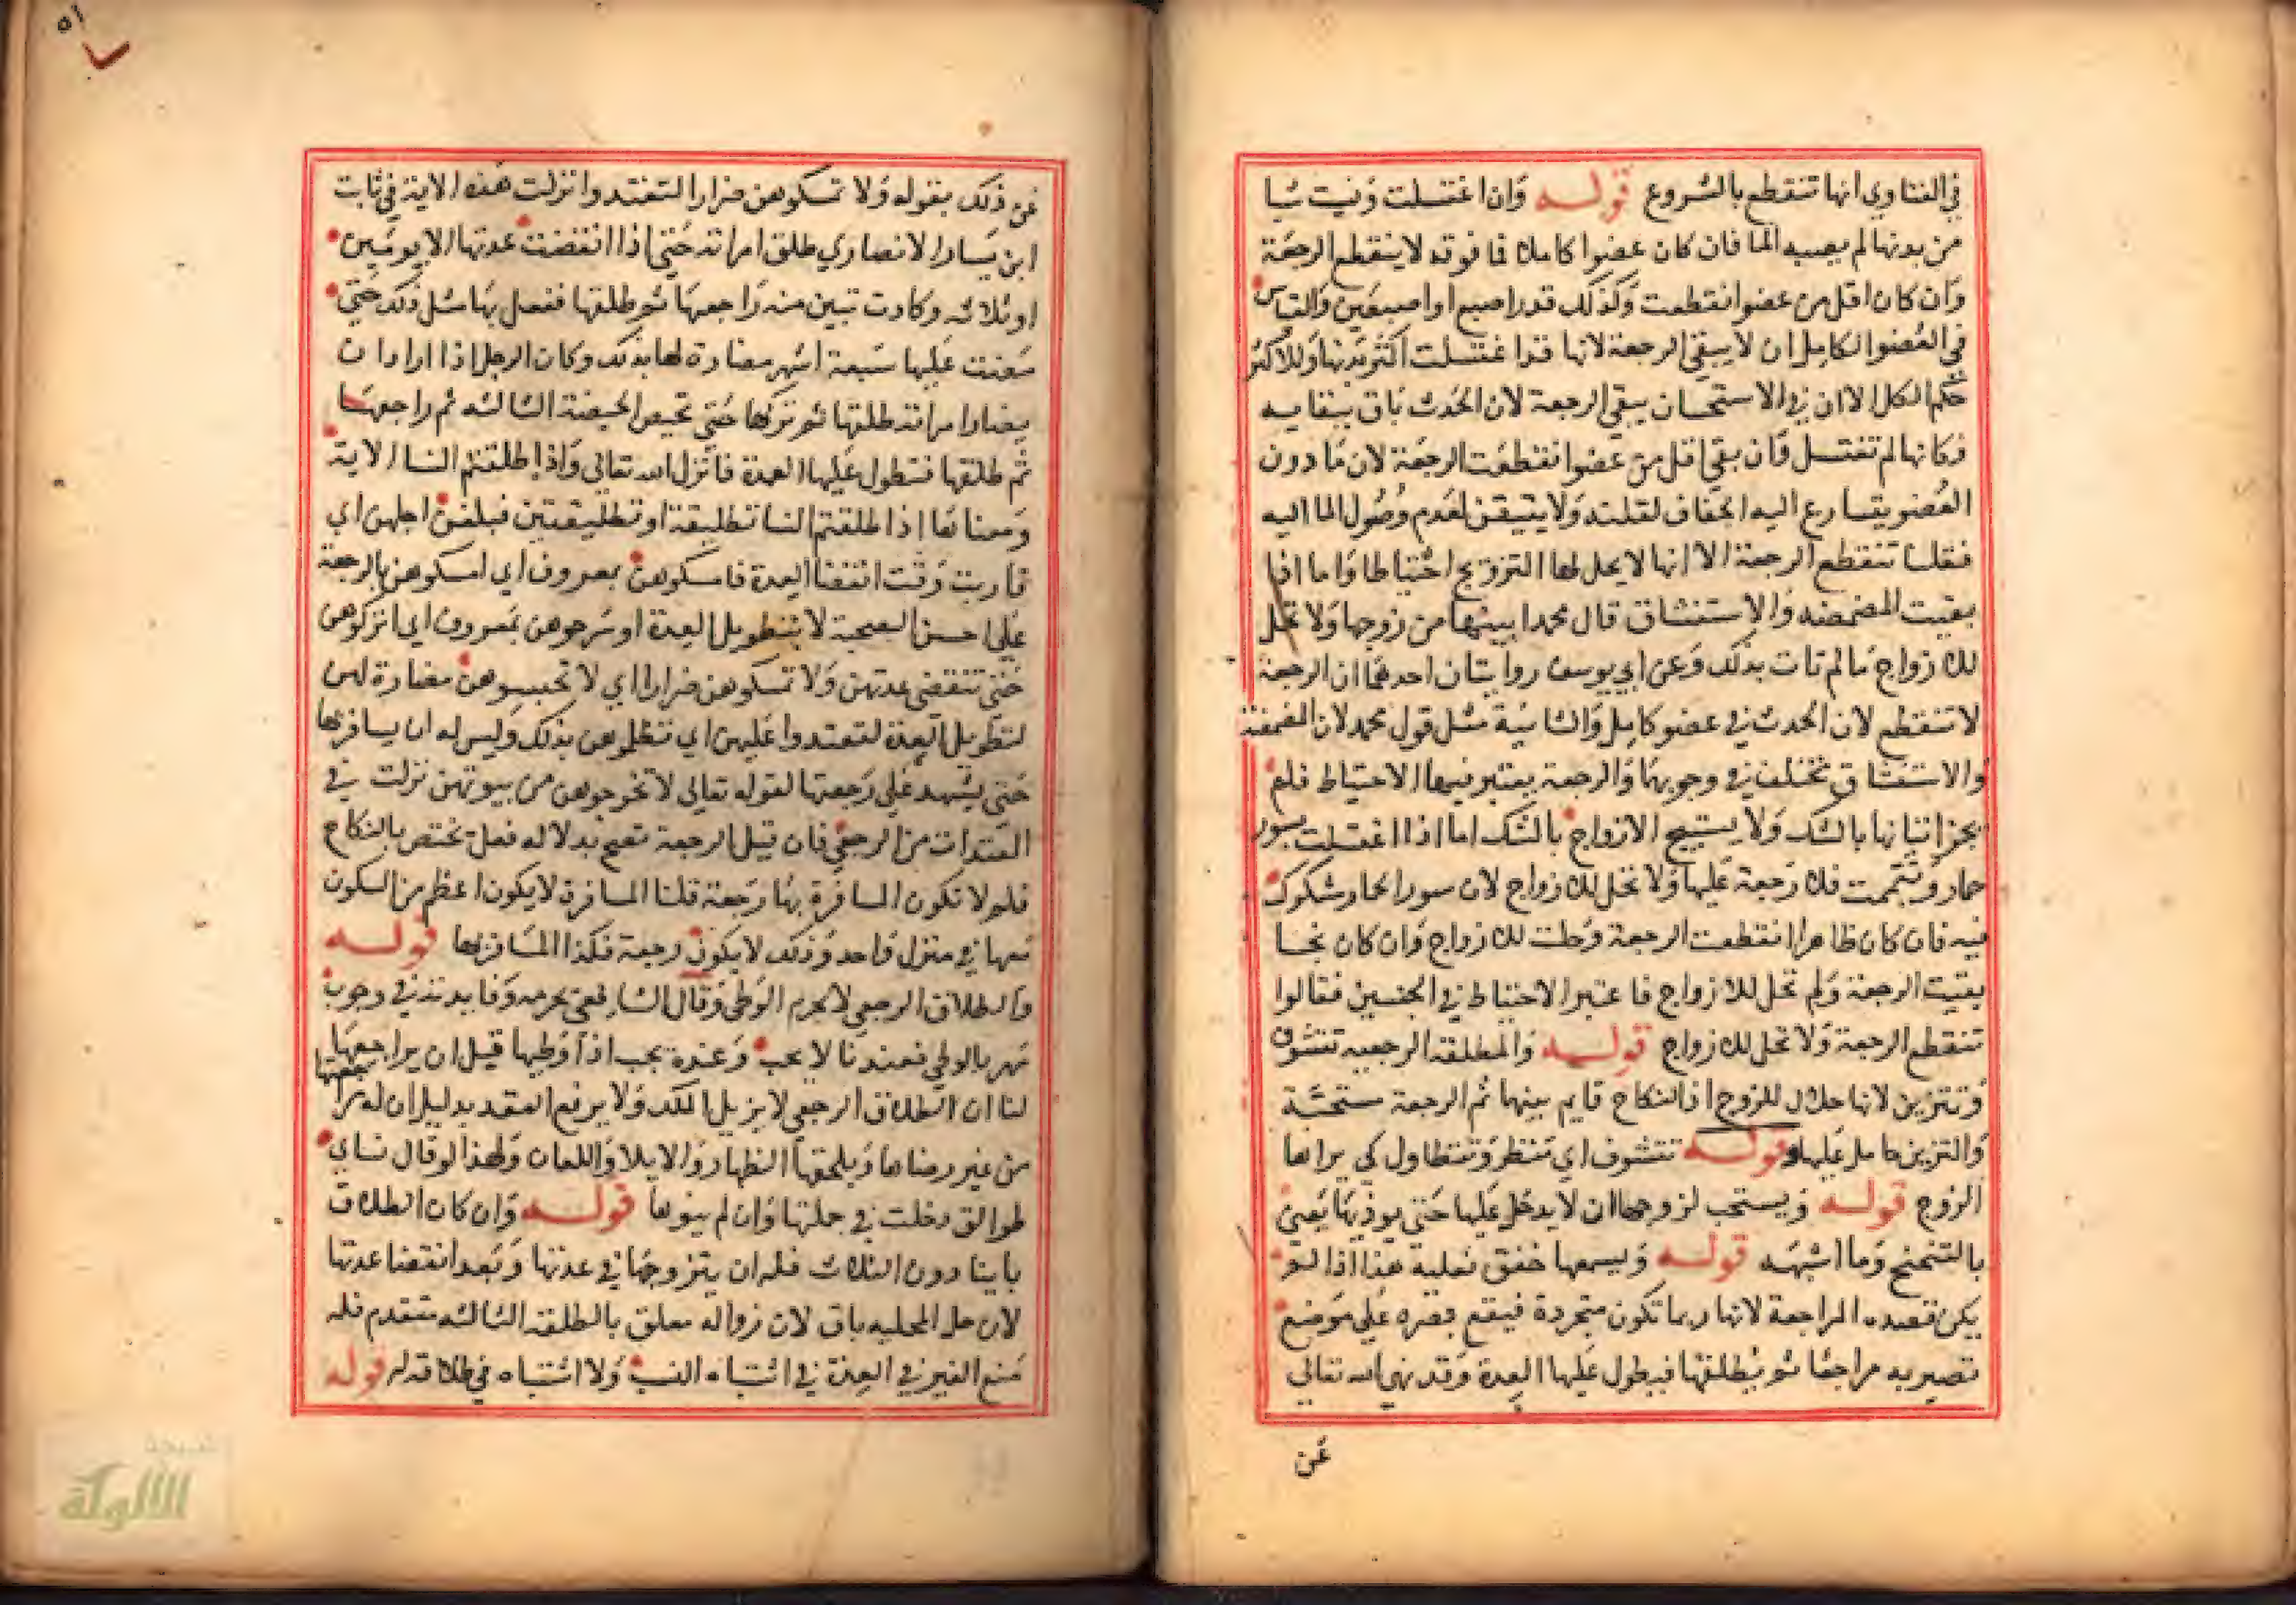 في الفتاوي انها تنقطع بالشروع قوله وان اغتسلت ونسيت شيا
من بدنها لم يصبه الما فان كان عضوا كاملا فما فوقه لا ينقطع الرجعة
وان كان اقل من عضو انقطعت وكذلك قدر اصبع او اصبعين والقياس
في العضو الكامل ان لا يبقي الرجعة لانها قد اغتسلت اكثر بدنها وللاكثر
حكم الكل الا ان في الاستحسان يبقي الرجعة لان الحدث باق ببقايه
فكانها لم تغتسل فان بقي اقل من عضو انقطعت الرجعة لان ما دون
العضو يتسارع اليه الجفاف لقلته ولا يتيقن لعدم وصول الما اليه
فقلنا تنقطع الرجعة الا انها لا يحل لها التزويج احتياطا واما اذا
بقيت المضمضه والاستنشاق قال محمد ابينها من زوجها ولا تحل
للازواج ما لم تات بذلك وعن ابي يوسف روايتان احدهما ان الرجعة
لا تنقطع لان الحدث في عضو كامل والثانية مثل قول محمد لان المضمضة
والاستنشاق مختلف في وجوبهما والرجعة يعتبر فيها الاحتياط فلم
يجز اتيانها بالشك ولا يستبيح الازواج بالشك اما اذا اغتسلت بسور
حمار وتيممت فلا رجعة عليها ولا تحل للازواج لان سور الحمار مشكوك
فيه فان كان طاهرا انقطعت الرجعة وحلت للازواج وان كان نجسا
بقيت الرجعة ولم تحل للازواج فاعتبر الاحتياط في الجنسين فقالوا
تنقطع الرجعة ولا تحل للازواج قوله والمطلقة الرجعيه تتشوف
وتتزين لانها حلال للزوج اذ النكاح قايم بينهما ثم الرجعة مستحبة
والتزين حامل عليها قوله تتشوف اي تنتظر وتتطاول كي يراها
الزوج قوله ويستحب لزوجها ان لا يدخل عليها حتي يوذيها يعني
بالتنحنح وما اشبهه قوله ويسمعها خفق نعليه هذا اذا لم
يكن قصده المراجعة لانها ربما تكون متجردة فيقع بصره علي موضع
تصير به مراجعا ثم يطلقها فيطول عليها العدة وقد نهي الله تعالي
عن
٥١
عن ذلك بقوله ولا تمسكوهن ضرارا لتعتدوا نزلت هذه الاية في ثابت
ابن يسار الانصاري طلق امراته حتي اذا انقضت عدتها الا يومين
او ثلاثه وكادت تبين منه راجعها ثم طلقها ففعل بها مثل ذلك حتي
مضت عليها سبعة اشهر مضارة لها بذلك وكان الرجل اذا اراد ان
يضار امراته طلقها ثم تركها حتي تحيض الحيضة الثالثه ثم راجعها
ثم طلقها فتطول عليها العدة فانزل الله تعالي واذا طلقتم النسا الاية
ومعناها اذا طلقتم النسا تطليقة او تطليقتين فبلغن اجلهن اي
قاربت وقت انقضا العدة فامسكوهن بمعروف اي امسكوهن بالرجعة
علي احسن الصحبة لا بتطويل العدة او سرحوهن بمعروف اي اتركوهن
حتي تنقضي عدتهن ولا تمسكوهن ضرارا اي لا تحبسوهن مضارة لهن
لتطويل العدة لتعتدوا عليهن اي تظلموهن بذلك وليس له ان يسافر بها
حتي يشهد علي رجعتها لقوله تعالي لا تخرجوهن من بيوتهن نزلت في
المعتدات من الرجعي فان قيل الرجعة تصح بدلاله فعل يختص بالنكاح
فلم لا تكون المسافرة بها رجعة قلنا المسافرة لا يكون اعظم من السكون
معها في منزل واحد وذلك لا يكون رجعة فكذا المسافر بها قوله
والطلاق الرجعي لا يحرم الوطي وقال الشافعي يحرمه وفايدته في وجوب
مهر بالوطي فعندنا لا يجب وعنده يجب اذا وطيها قبل ان يراجعها
لنا ان الطلاق الرجعي لا يزيل الملك ولا يرفع العقد بدليل ان له مراجعتها
من غير رضاها ويلحقها الظهار والايلا واللعان ولهذا لو قال نساي
طوالق دخلت في جملتها وان لم ينوها قوله وان كان الطلاق
باينا دون الثلاث فله ان يتزوجها في عدتها وبعد انقضا عدتها
لان حل المحليه باق لان زواله معلق بالطلقة الثالثه متقدم فله
منع الغير في العدة في اشتباه النسب ولا اشتباه في طلاقه له قوله
الألوكة